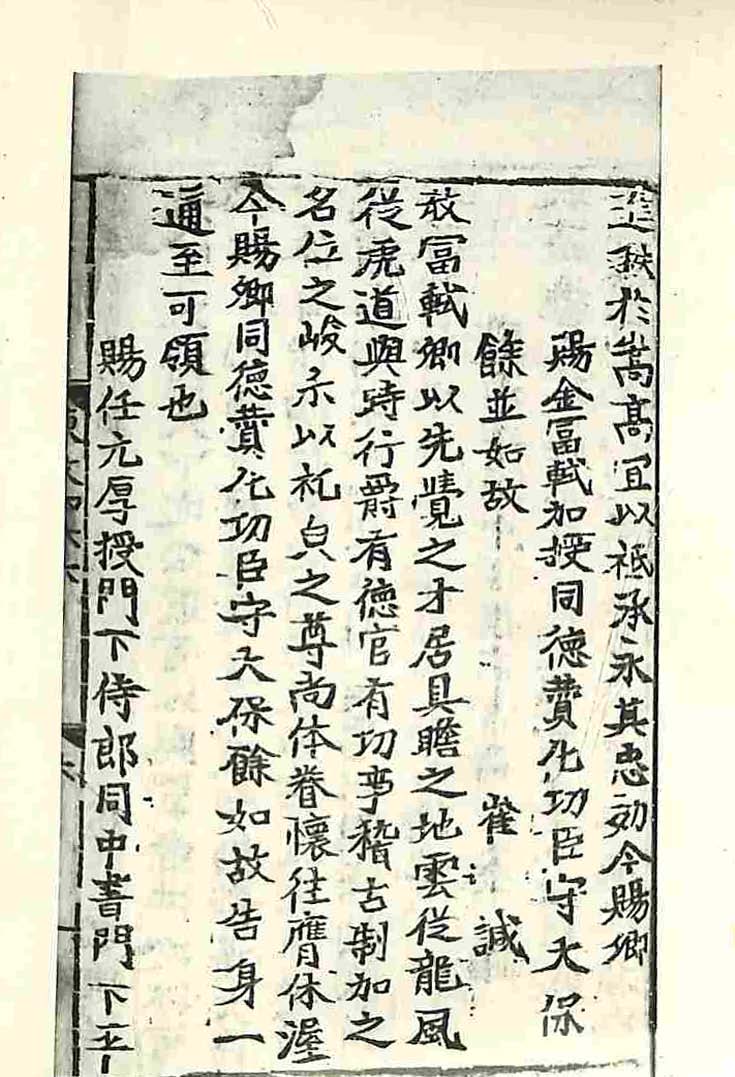 進秩於嵩高宜以祗承永其忠効今賜卿
賜金富軾加授同德賛化功臣守大保
餘並如故 崔 諴
敎富軾卿以先覺之才居具瞻之地雲從龍風
從虎道與時行爵有德官有功事稽古制加之
名位之峻示以礼皃之尊尚体眷懷往膺休渥
今賜卿同德賛化功臣守大保餘如故告身一
通至可領也
賜任元厚授門下侍郎同中書門下平